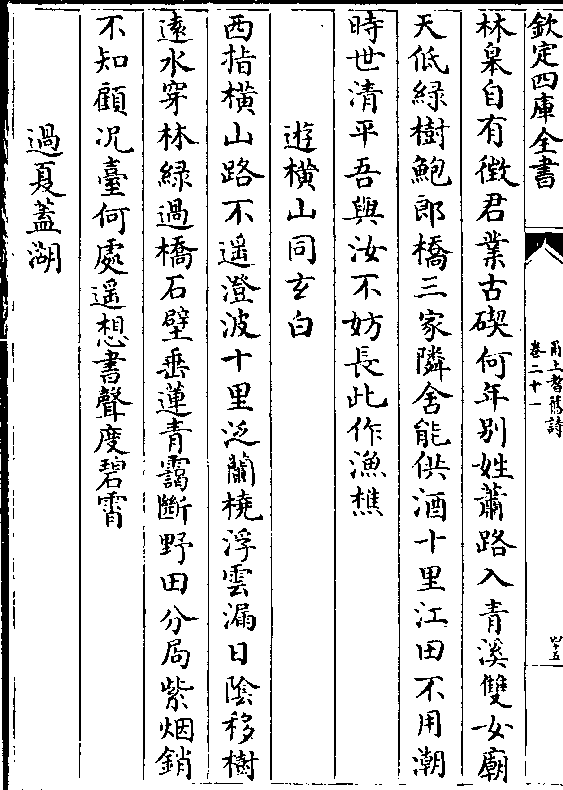 欽定四庫全書
甬上耆舊詩
卷二十一
四十五
林皋自有徵君業古碶何年别姓蕭路入青溪雙女廟
天低綠樹鮑郎橋三家隣舍能供酒十里江田不用潮
時世清平吾與汝不妨長此作漁樵
遊橫山同玄白
西指橫山路不遥澄波十里泛蘭橈浮雲漏日陰移樹
遠水穿林綠過橋石壁垂蓮青靄斷野田分局紫烟銷
不知顧况臺何處遥想書聲度碧霄
過夏蓋湖